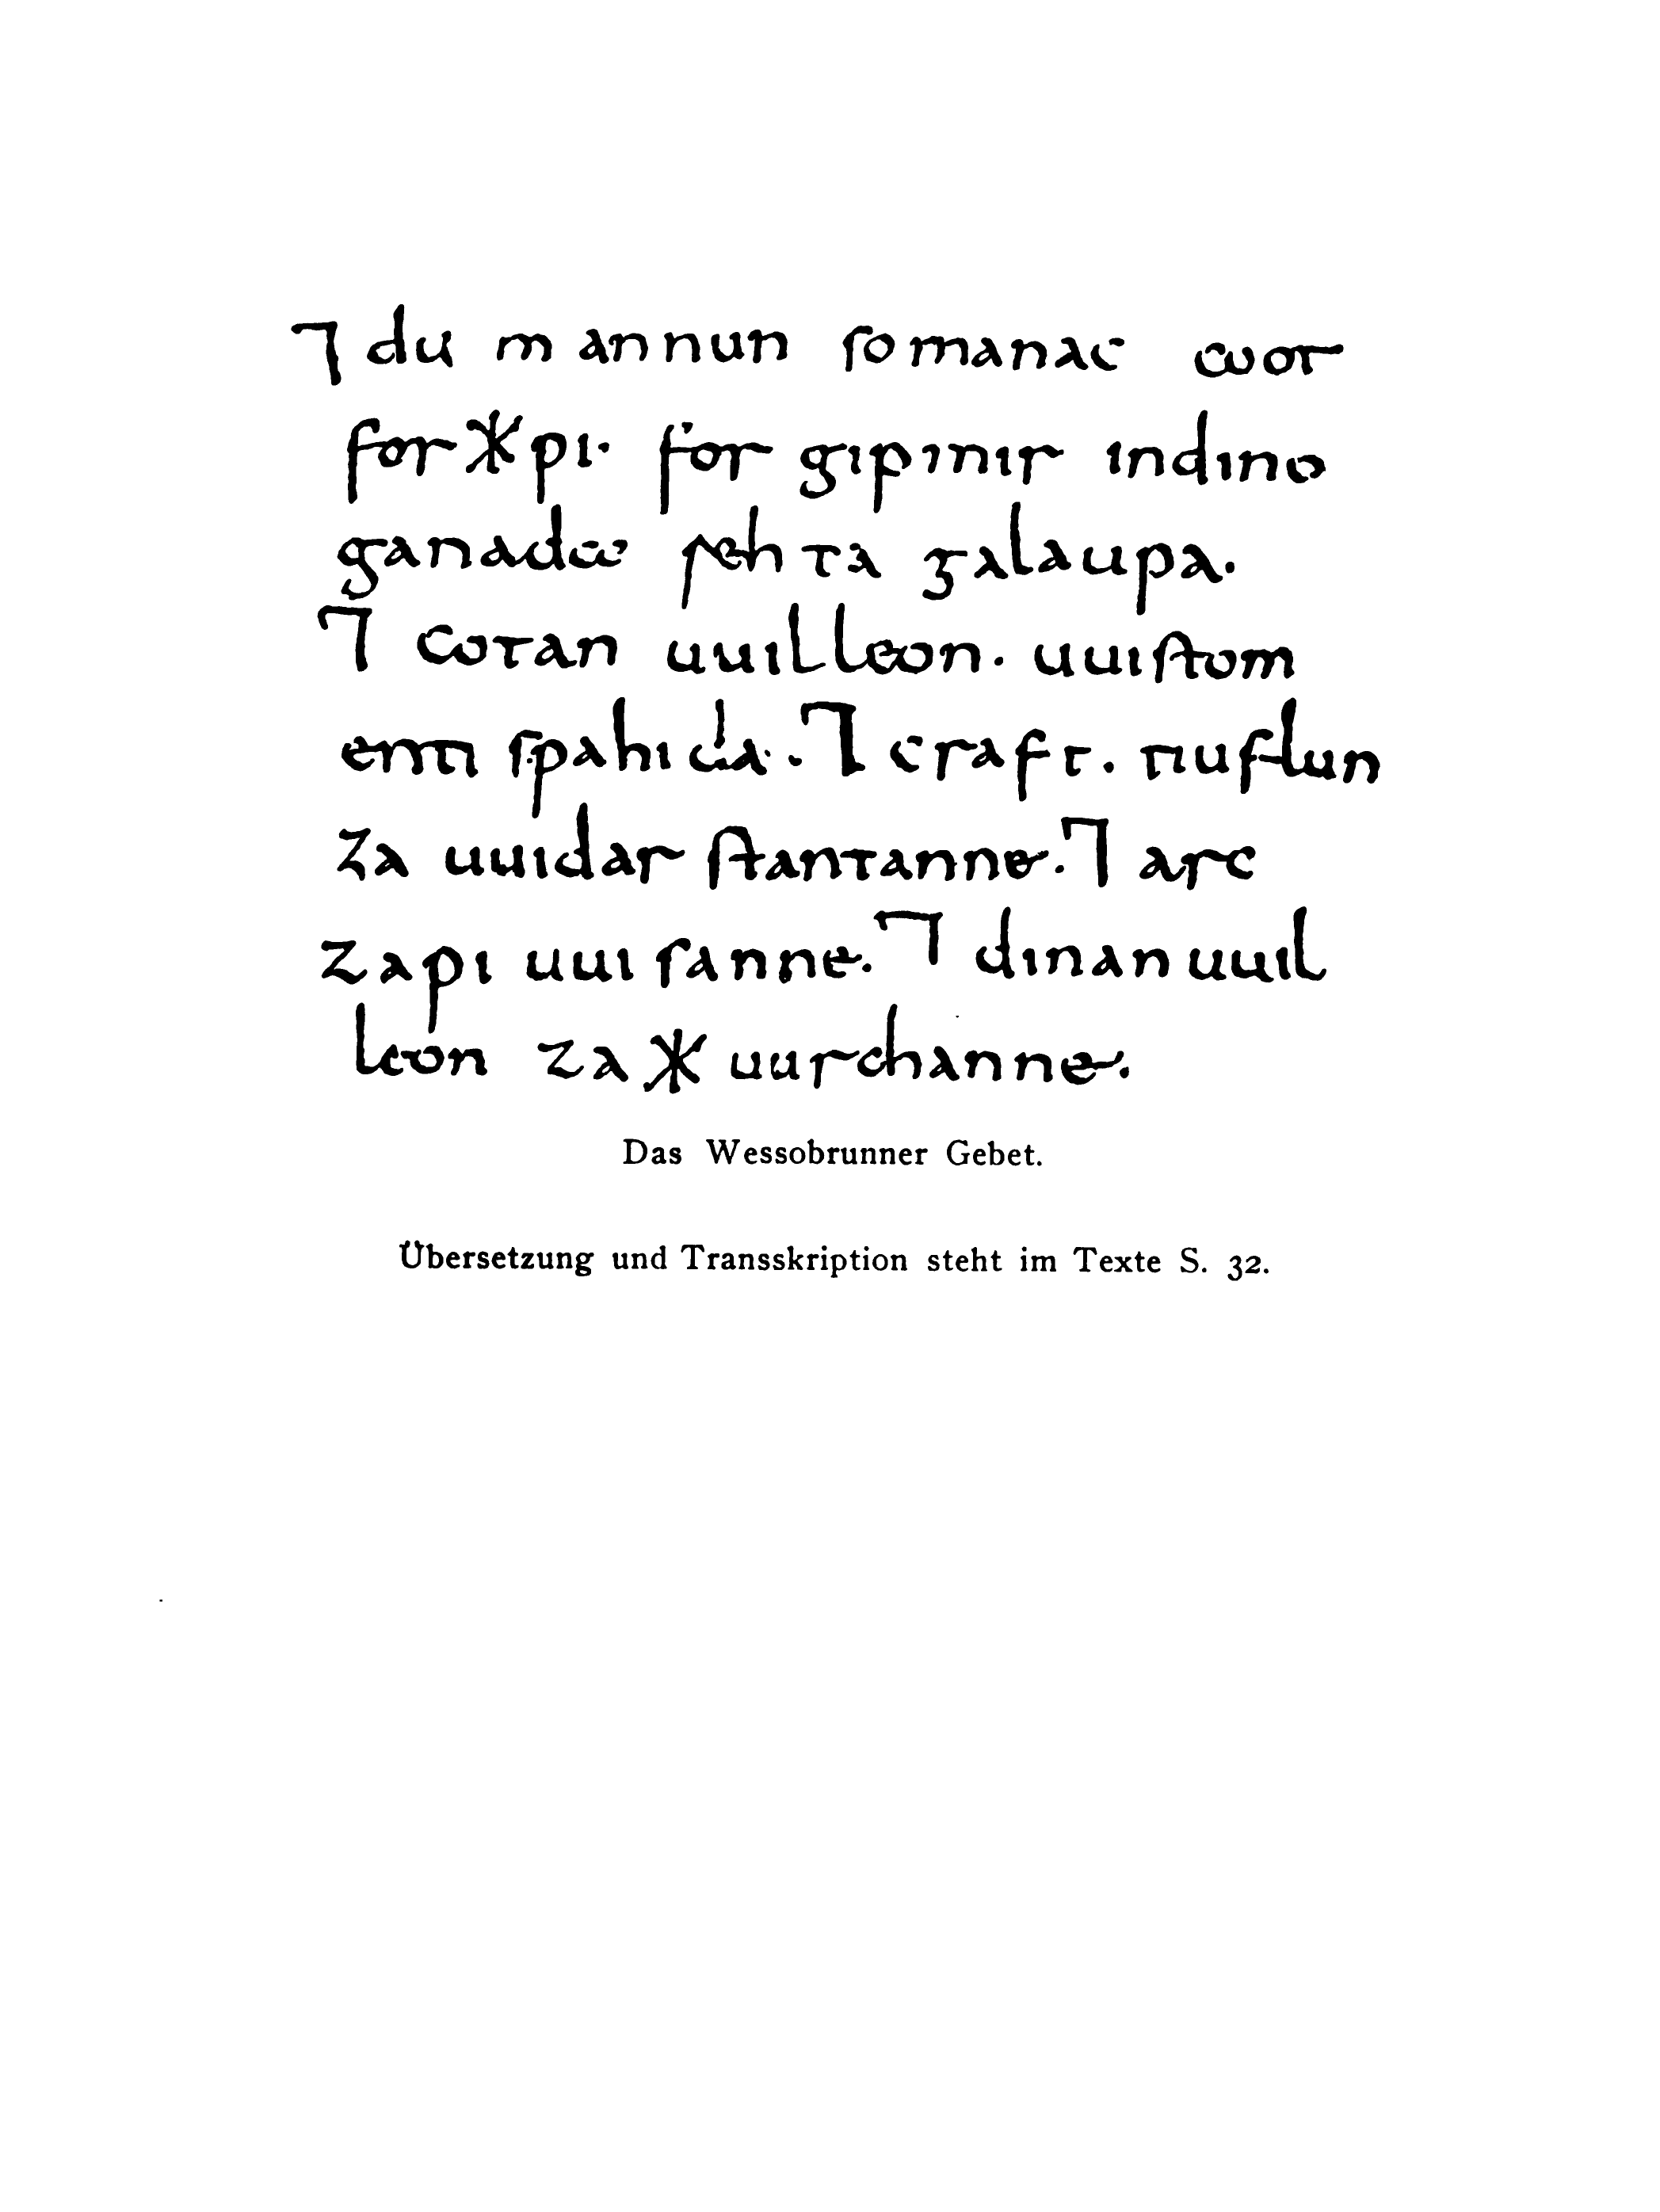 ⁊ du mannun somanac coot
for ᚼ pi· for gipmir indino
ganada rehta galaupa.
⁊ cotan uuilleon. uuistom
enti spahida. ⁊ craft. tiuflun
za uuidar stantanne. ⁊ arc
zapi uuisanne. ⁊ dinan uuil
leon za ᚼ uurchanne.
Das Wessobrunner Gebet.
Übersetzung und Transskription steht im Texte S. 32.